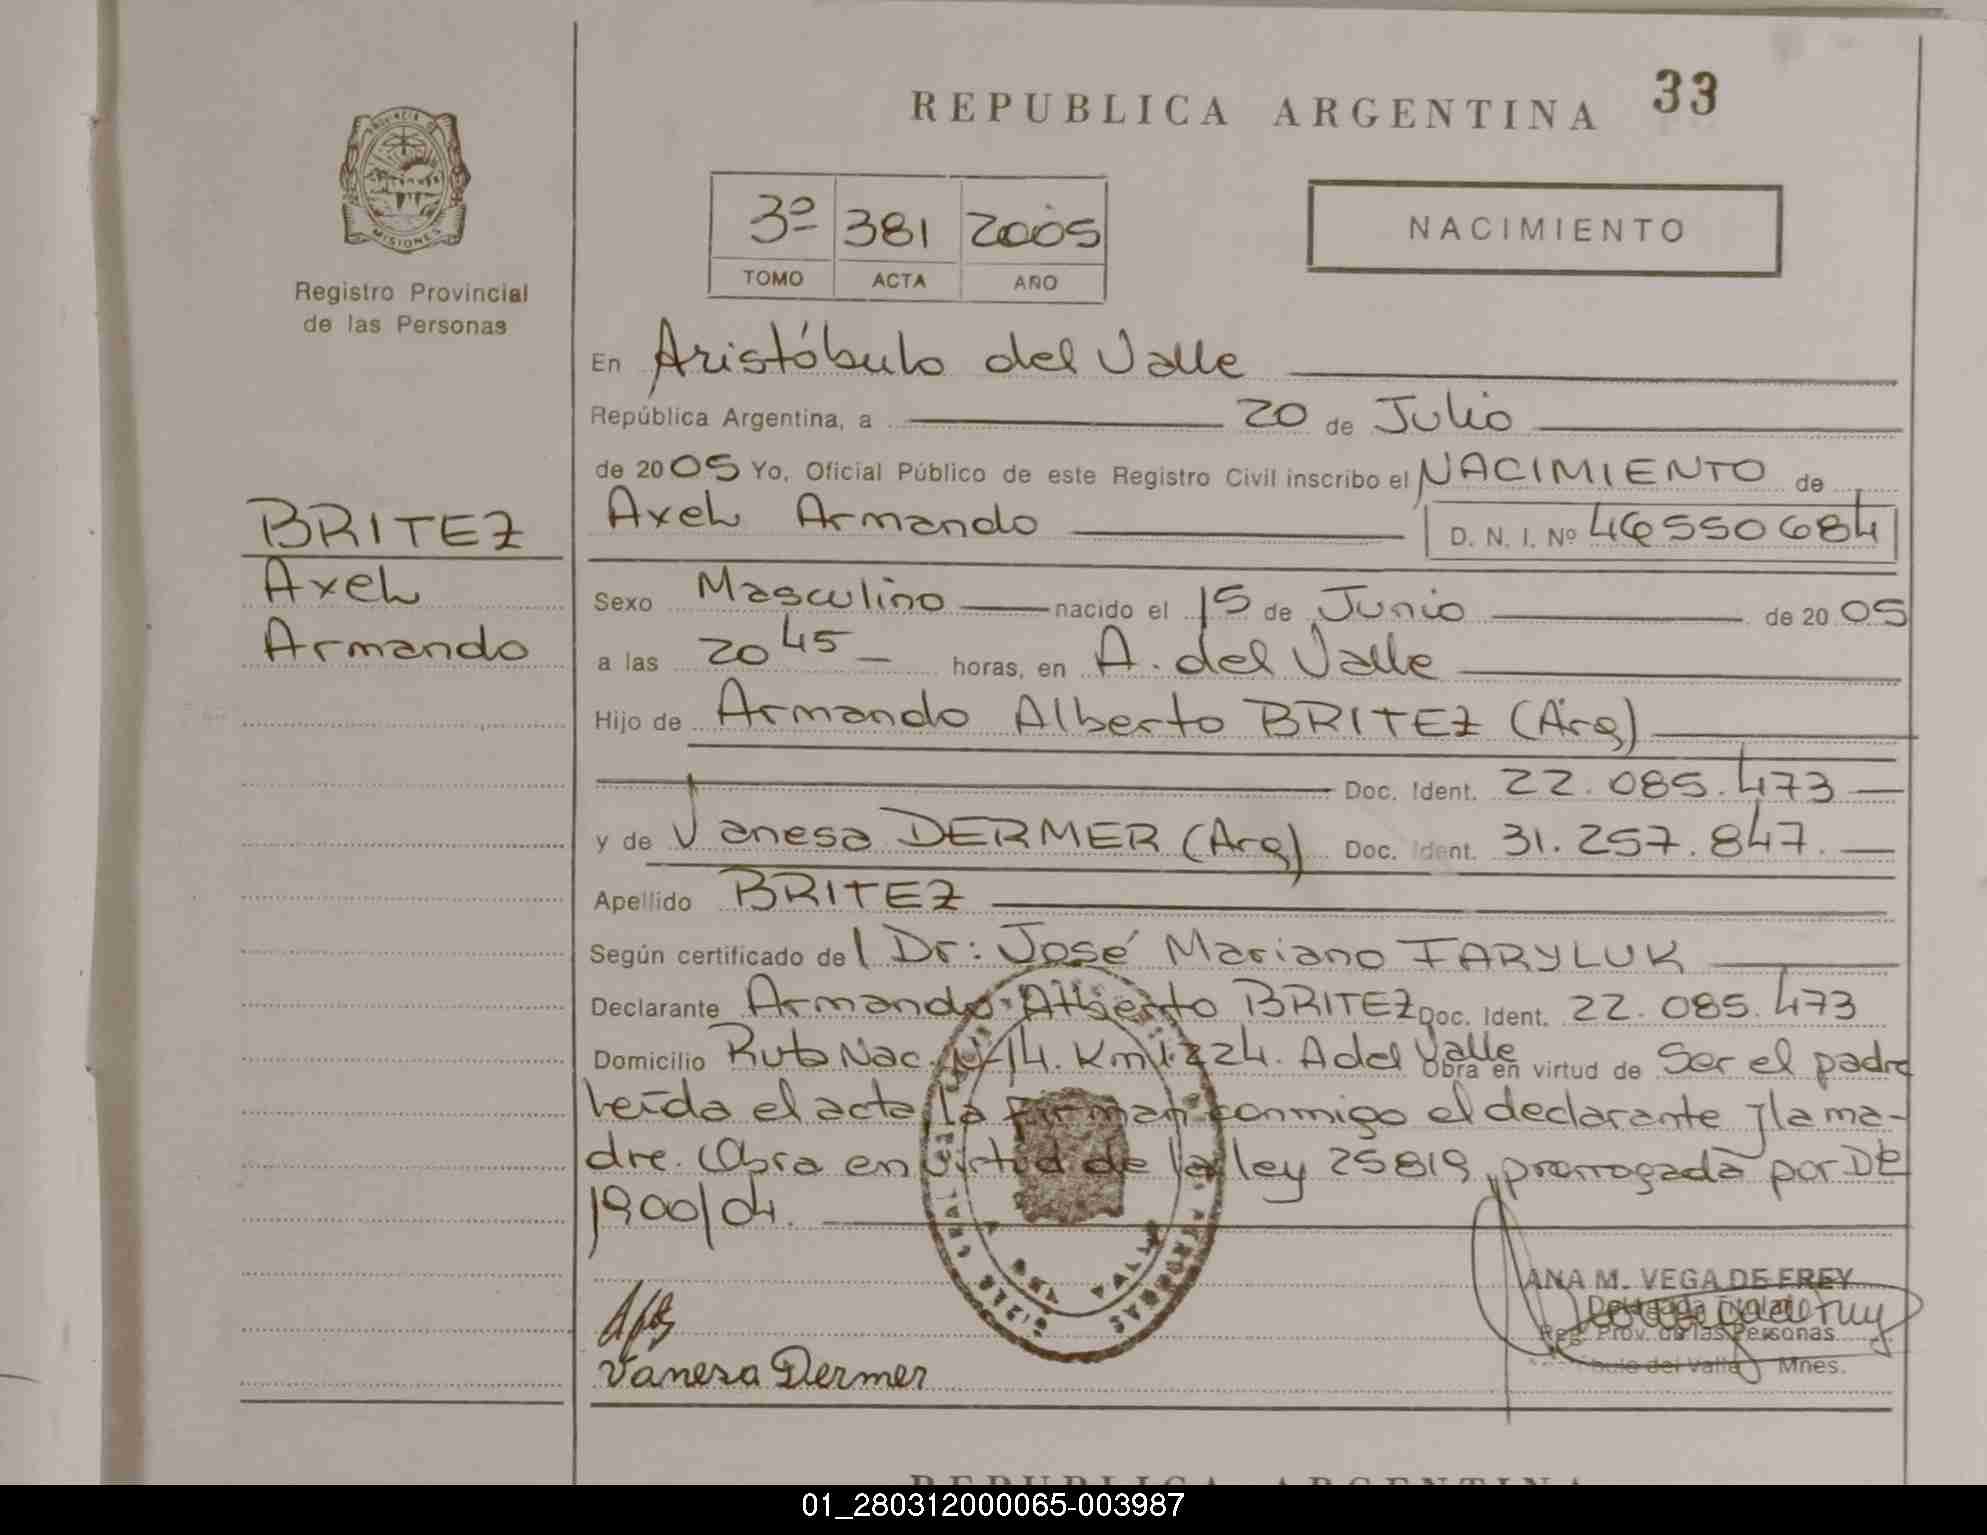 33
REPUBLICA ARGENTINA
PROVINCIA DE
MISIONES
Registro Provincial
de las Personas
3º 381 2005
TOMO ACTA AÑO
NACIMIENTO
En Aristóbulo del Valle
República Argentina, a 20 de Julio
de 2005 Yo, Oficial Público de este Registro Civil inscribo el NACIMIENTO de
BRITEZ
Axel
Armando
Axel Armando D. N. I. Nº 46550684
Sexo Masculino nacido el 15 de Junio de 2005
a las 20 45 horas, en A. del Valle
Hijo de Armando Alberto BRITEZ (Arg)
Doc. Ident. 22.085.473
y de Vanesa DERMER (Arg) Doc. Ident. 31.257.847.
Apellido BRITEZ
Según certificado del Dr: José Mariano FARYLUK
Declarante Armando Alberto BRITEZ Doc. Ident. 22.085.473
Domicilio Ruta Nac. Nº 14. Km 1224. A del Valle Obra en virtud de Ser el padre
leída el acta la firman conmigo el declarante y la ma-
dre. Obra en virtud de la ley 25819 prorrogada por DE
1900/04.
ANA M. VEGA DE FREY
Delegada Titular
Reg. Prov. de las Personas
del Valle Mnes.
Vanesa Dermer
REPUBLICA ARGENTINA
01_280312000065-003987